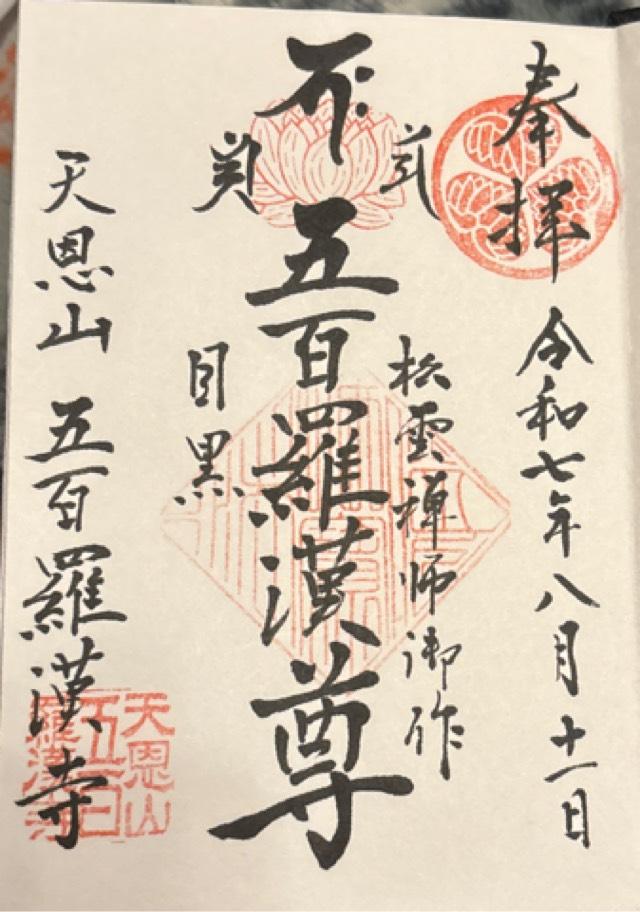 奉拝
令和七年八月十一日
松雲禅師御作
五百羅漢尊
目黒
天恩山 五百羅漢寺
天恩山
五百
羅漢寺